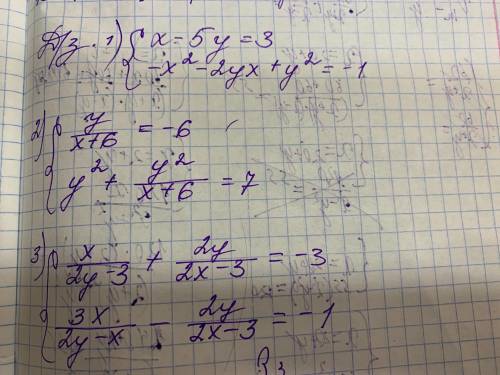 Д/з. 1) { x = 5y = 3
-x² - 2yx + y² = -1
2) { y/(x+6) = -6
y² + y²/(x+6) = 7
3) { x/(2y-3) + 2y/(2x-3) = -3
3x/(2y-x) - 2y/(2x-3) = -1